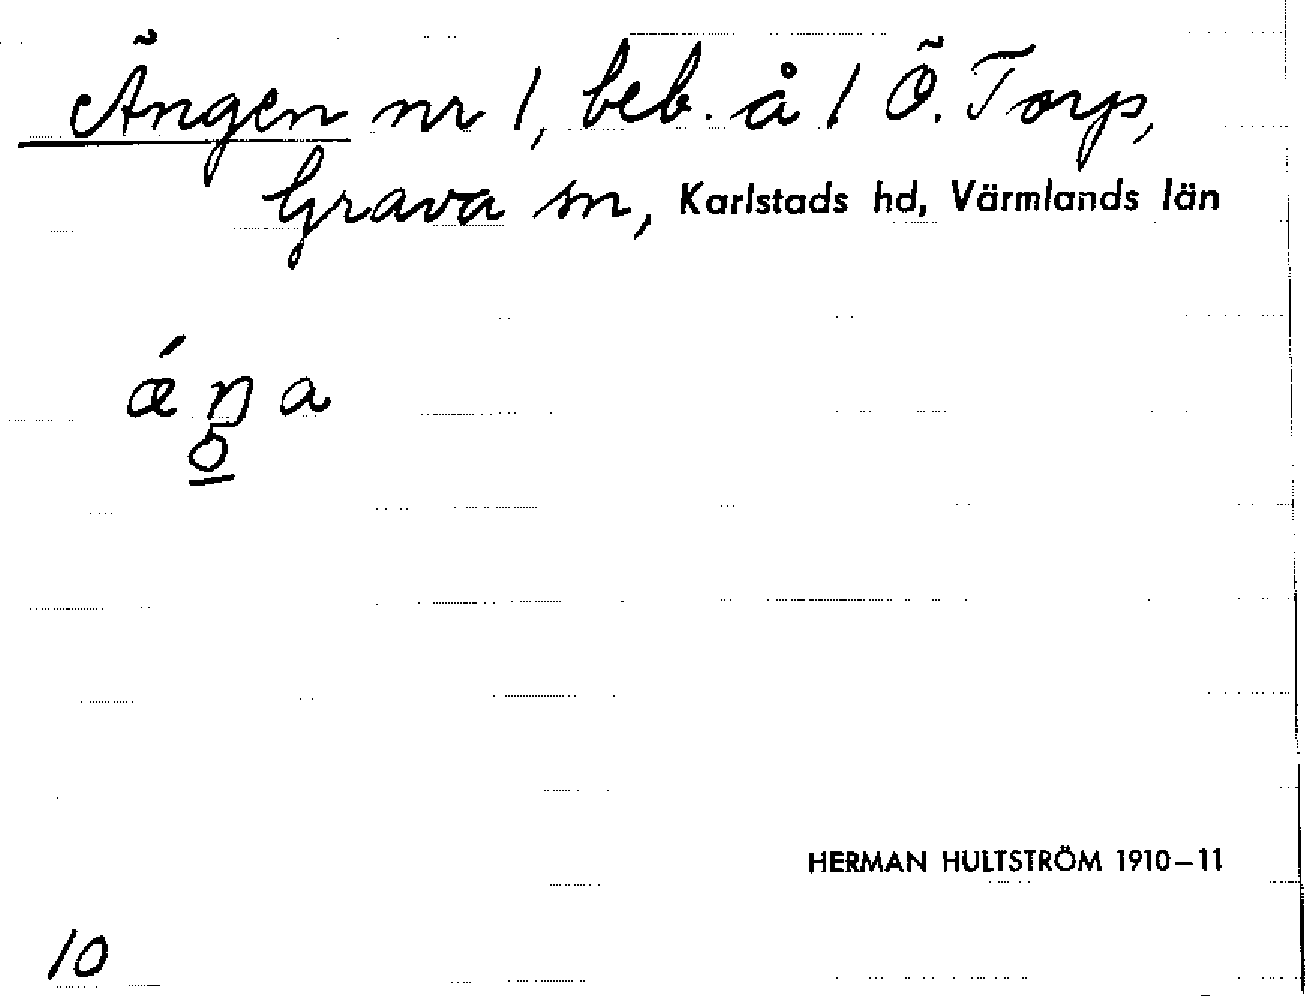 Ängen nr 1, beb. å 1 Ö. Torp,
Grava sn, Karlstads hd, Värmlands län
ǽŋa
5
HERMAN HULTSTRÖM 1910–11
10